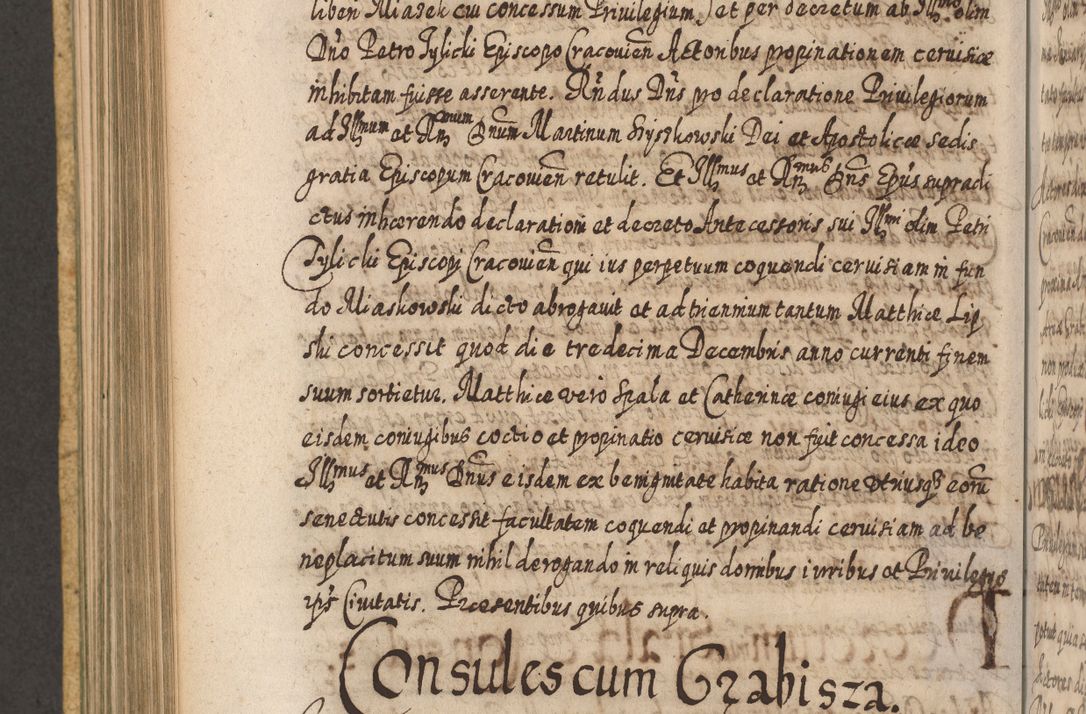 liben Miasek cui concessum Privilegium) et per decretum ab Ill^mo olim
Dno Petro Tylicki Episcopo Cracovien Actoribus propinationem cervisiæ
inhibitam fuisse asserente. Rndus Dns pro declaratione Privilegiorum
ad Ill^mum et Rn^mum Dnum Martinum Szyszkowski Dei et Apostolicæ sedis
gratia Episcopum Cracovien retulit. Et Ill^mus et Rn^mus Dns Epus supradi
ctus inhærendo declarationi et decreto Antecessoris sui Ill^mi olim Petri
Tylicki Episcopi Cracovien qui ius perpetuum coquendi cervisiam in fun
do Miaskowski dicto abrogavit et ad triennium tantum Matthiæ Lip
ski concessit quod die tredecima Decembris anno currenti finem
suum sortietur. Matthiæ vero Szala et Catherinæ coniugi eius ex quo
eisdem coniugibus coctio et propinatio cervisiæ non fuit concessa ideo
Ill^mus et Rn^mus Dnus eisdem ex benignitate habita ratione utriusq3 eorū
senectutis concessit facultatem coquendi et propinandi cervisiam ad be
neplacitum suum nihil derogando in reliquis domibus iuribus et Privilegijs
ips Civitatis. Præsentibus quibus supra.
Consules cum Grabisza.